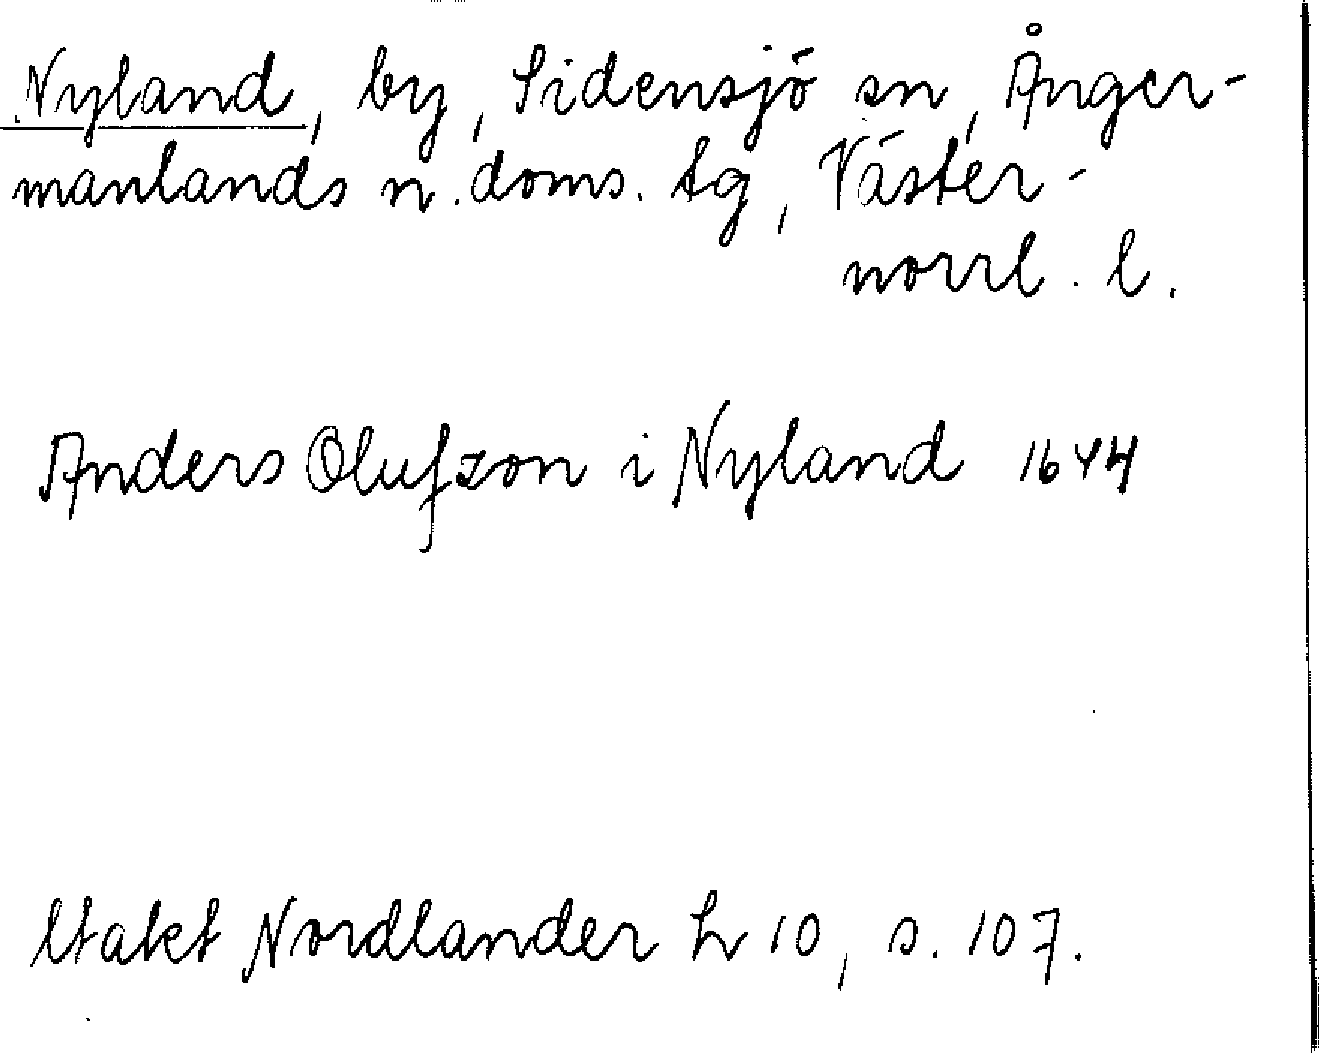 Nyland, by, Sidensjö sn, Ånger-
manlands n. doms. tg, Väster-
norrl. l.
Anders Olufzon i Nyland 1644
Utakt Nordlander h 10, s. 107.